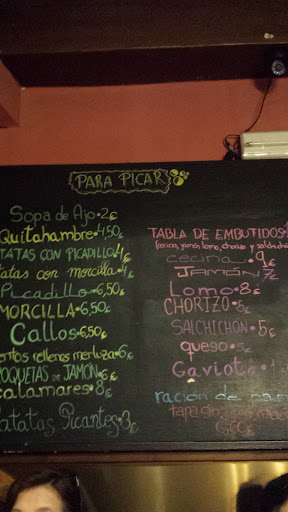 PARA PICAR
Sopa de Ajo • 2€
Quitahambre • 4,50€
TATAS CON PICADILLO 4€
tatas con morcilla • 4€
Picadillo • 6,50€
MORCILLA • 6,50€
Callos • 6,50€
entos rellenos merluza • 6€
ROQUETAS DE JAMÓN • 6€
calamares • 8€
atatas Picantes • 3€
TABLA DE EMBUTIDOS
cecina • 9€
JAMÓN 7€
Lomo • 8€
CHORIZO • 5€
SALCHICHÓN • 5€
queso • 5€
Gaviota
ración de pan
6,60€